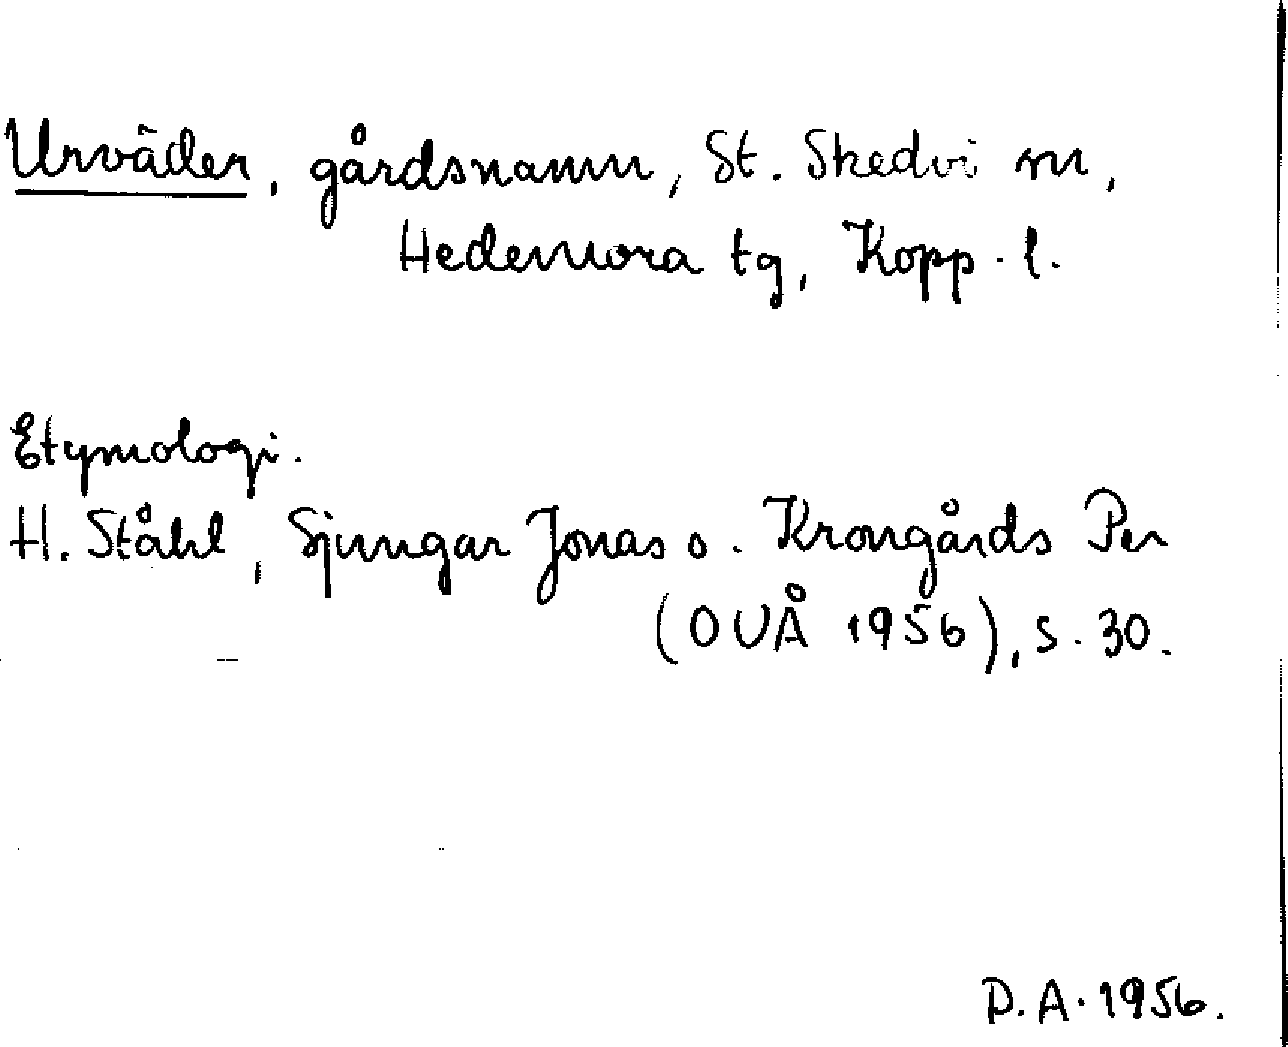 Urväder, gårdsnamn, St. Skedvi sn,
Hedemora tg, Kopp. l.
Etymologi.
H. Ståhl, Sjungar Jonas o. Krongårds Per
(OUÅ 1956), s. 30.
D. A. 1956.